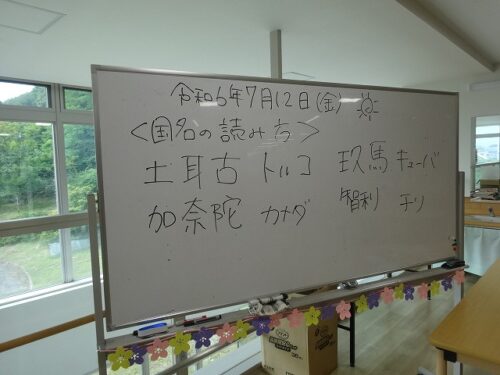 令和6年7月12日(金)
<国名の読み方>
土耳古 トルコ 玖馬 キューバ
加奈陀 カナダ 智利 チリ